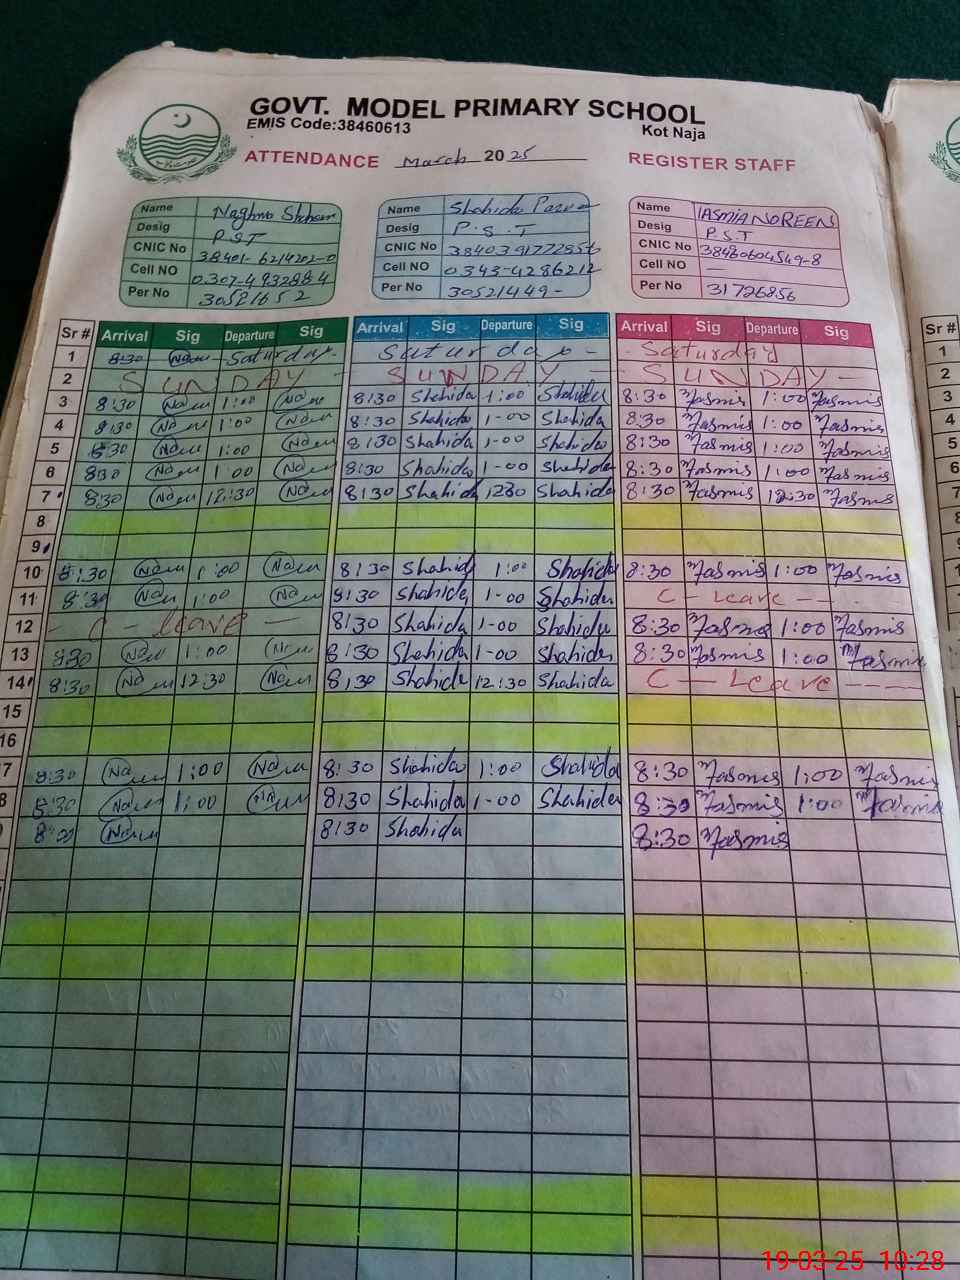 GOVT. MODEL PRIMARY SCHOOL
EMIS Code:38460613 Kot Naja
ATTENDANCE March 2025 REGISTER STAFF
Name Naghma Name Shahida Name IASMIA NOREEN
Desig P.S.T Desig P.S.T Desig P.S.T
CNIC No 38401-6214202-0 CNIC No CNIC No 38460604549-8
Cell NO 0307-4932884 Cell NO 0343-4286212 Cell NO —
Per No 30521652 Per No 30521449- Per No 31726856
Sr # Arrival Sig Departure Sig Arrival Sig Departure Sig Arrival Sig Departure Sig Sr #
1 8:30 Saturday - Saturday - Saturday 1
2 SUNDAY - SUNDAY - SUNDAY - 2
3 8:30 1:00 8:30 Shahida 1:00 Shahida 8:30 Yasmis 1:00 Yasmis 3
4 8:30 1:00 8:30 Shahida 1-00 Shahida 8:30 Yasmis 1:00 Yasmis 4
5 8:30 1:00 8:30 Shahida 1-00 Shahida 8:30 Yasmis 1:00 Yasmis 5
6 8:30 1:00 8:30 Shahida 1-00 Shahida 8:30 Yasmis 1:00 Yasmis 6
7 8:30 12:30 8:30 Shahida 1230 Shahida 8:30 Yasmis 12:30 Yasmis 7
8
9
10 8:30 1:00 8:30 Shahida 1:00 Shahida 8:30 Yasmis 1:00 Yasmis
11 8:30 1:00 8:30 Shahida 1-00 Shahida C - Leave --
12 - C - leave - 8:30 Shahida 1-00 Shahida 8:30 Yasmis 1:00 Yasmis
13 8:30 1:00 8:30 Shahida 1-00 Shahida 8:30 Yasmis 1:00 Yasmis
14 8:30 12:30 8:30 Shahida 12:30 Shahida C - Leave ----
15
16
7 8:30 1:00 8:30 Shahida 1:00 Shahida 8:30 Yasmis 1:00 Yasmis
8 8:30 1:00 8:30 Shahida 1-00 Shahida 8:30 Yasmis 1:00 Yasmis
8:30 Shahida 8:30 Yasmis
19-03-25 10:28